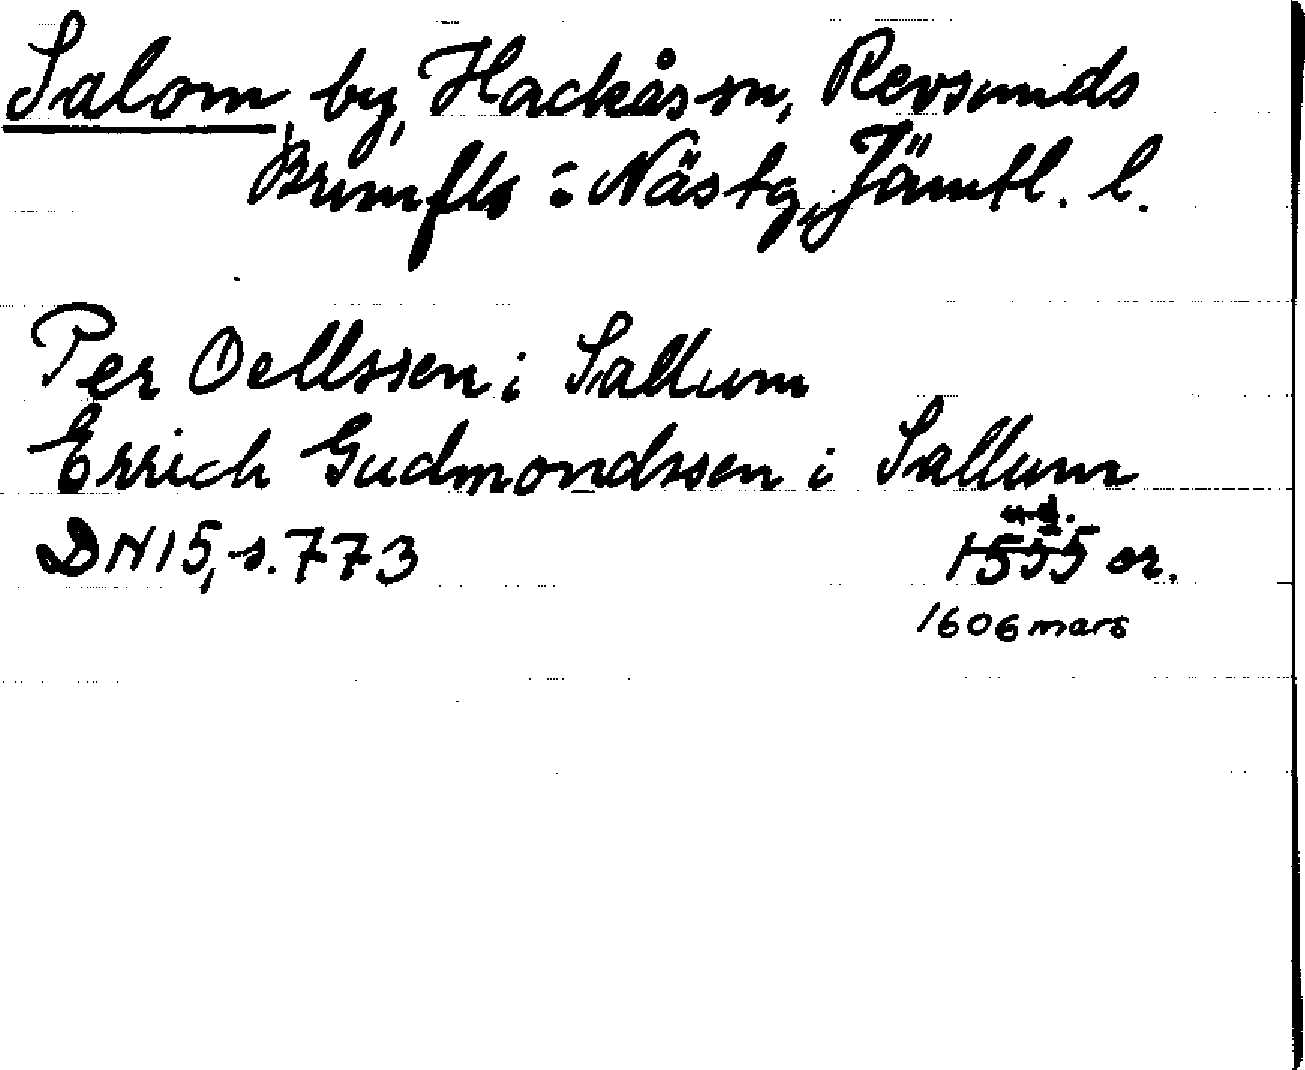 Salom, by, Hackås sn, Revsunds
Brunflo : Nästg, Jämtl. l.
Per Oellssen i Sallum
Errich Gudmondssen i Sallum
u.d.
DN 15, s. 773 1555 or.
1606 mars